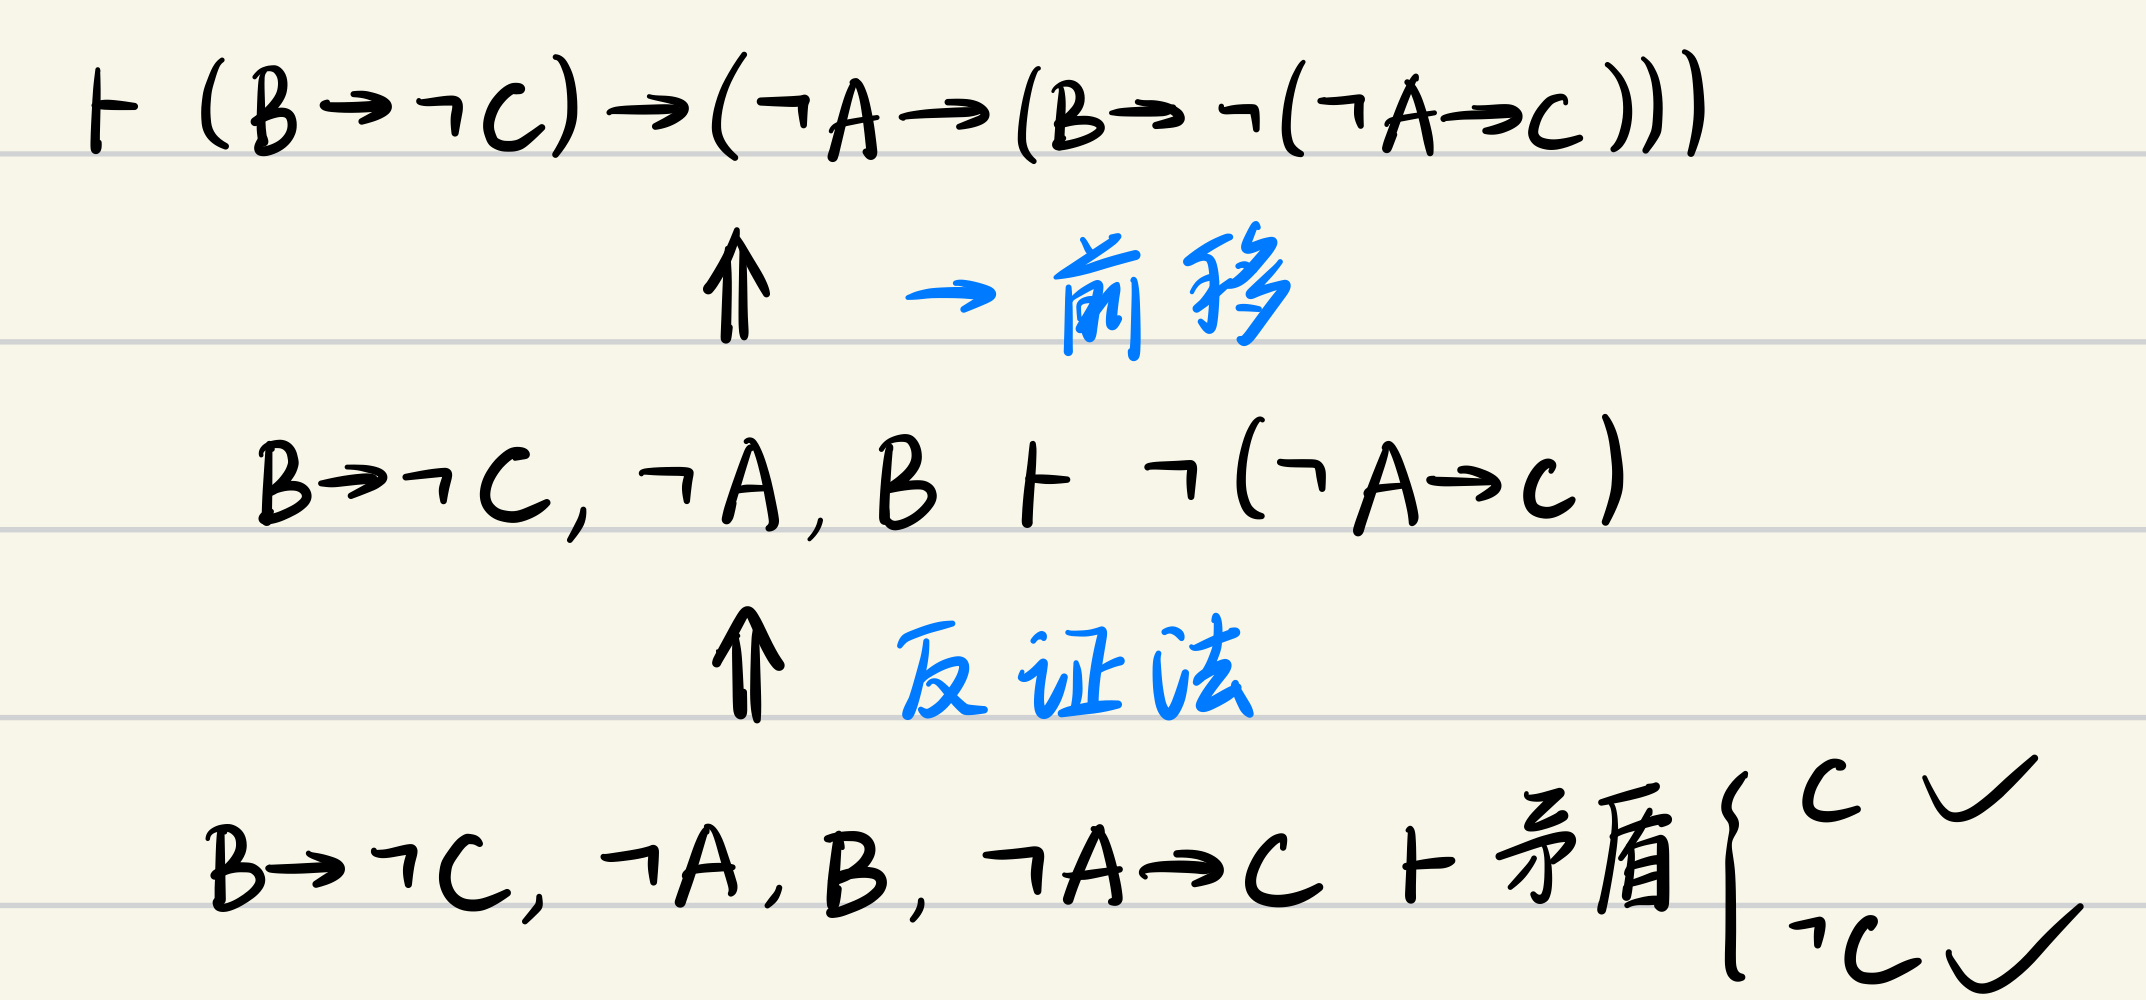 ⊢ (B→¬C)→(¬A→(B→¬(¬A→C))))
⇑ →前移
B→¬C, ¬A, B ⊢ ¬(¬A→C)
⇑ 反证法
B→¬C, ¬A, B, ¬A→C ⊢ 矛盾 { C ✓
¬C ✓